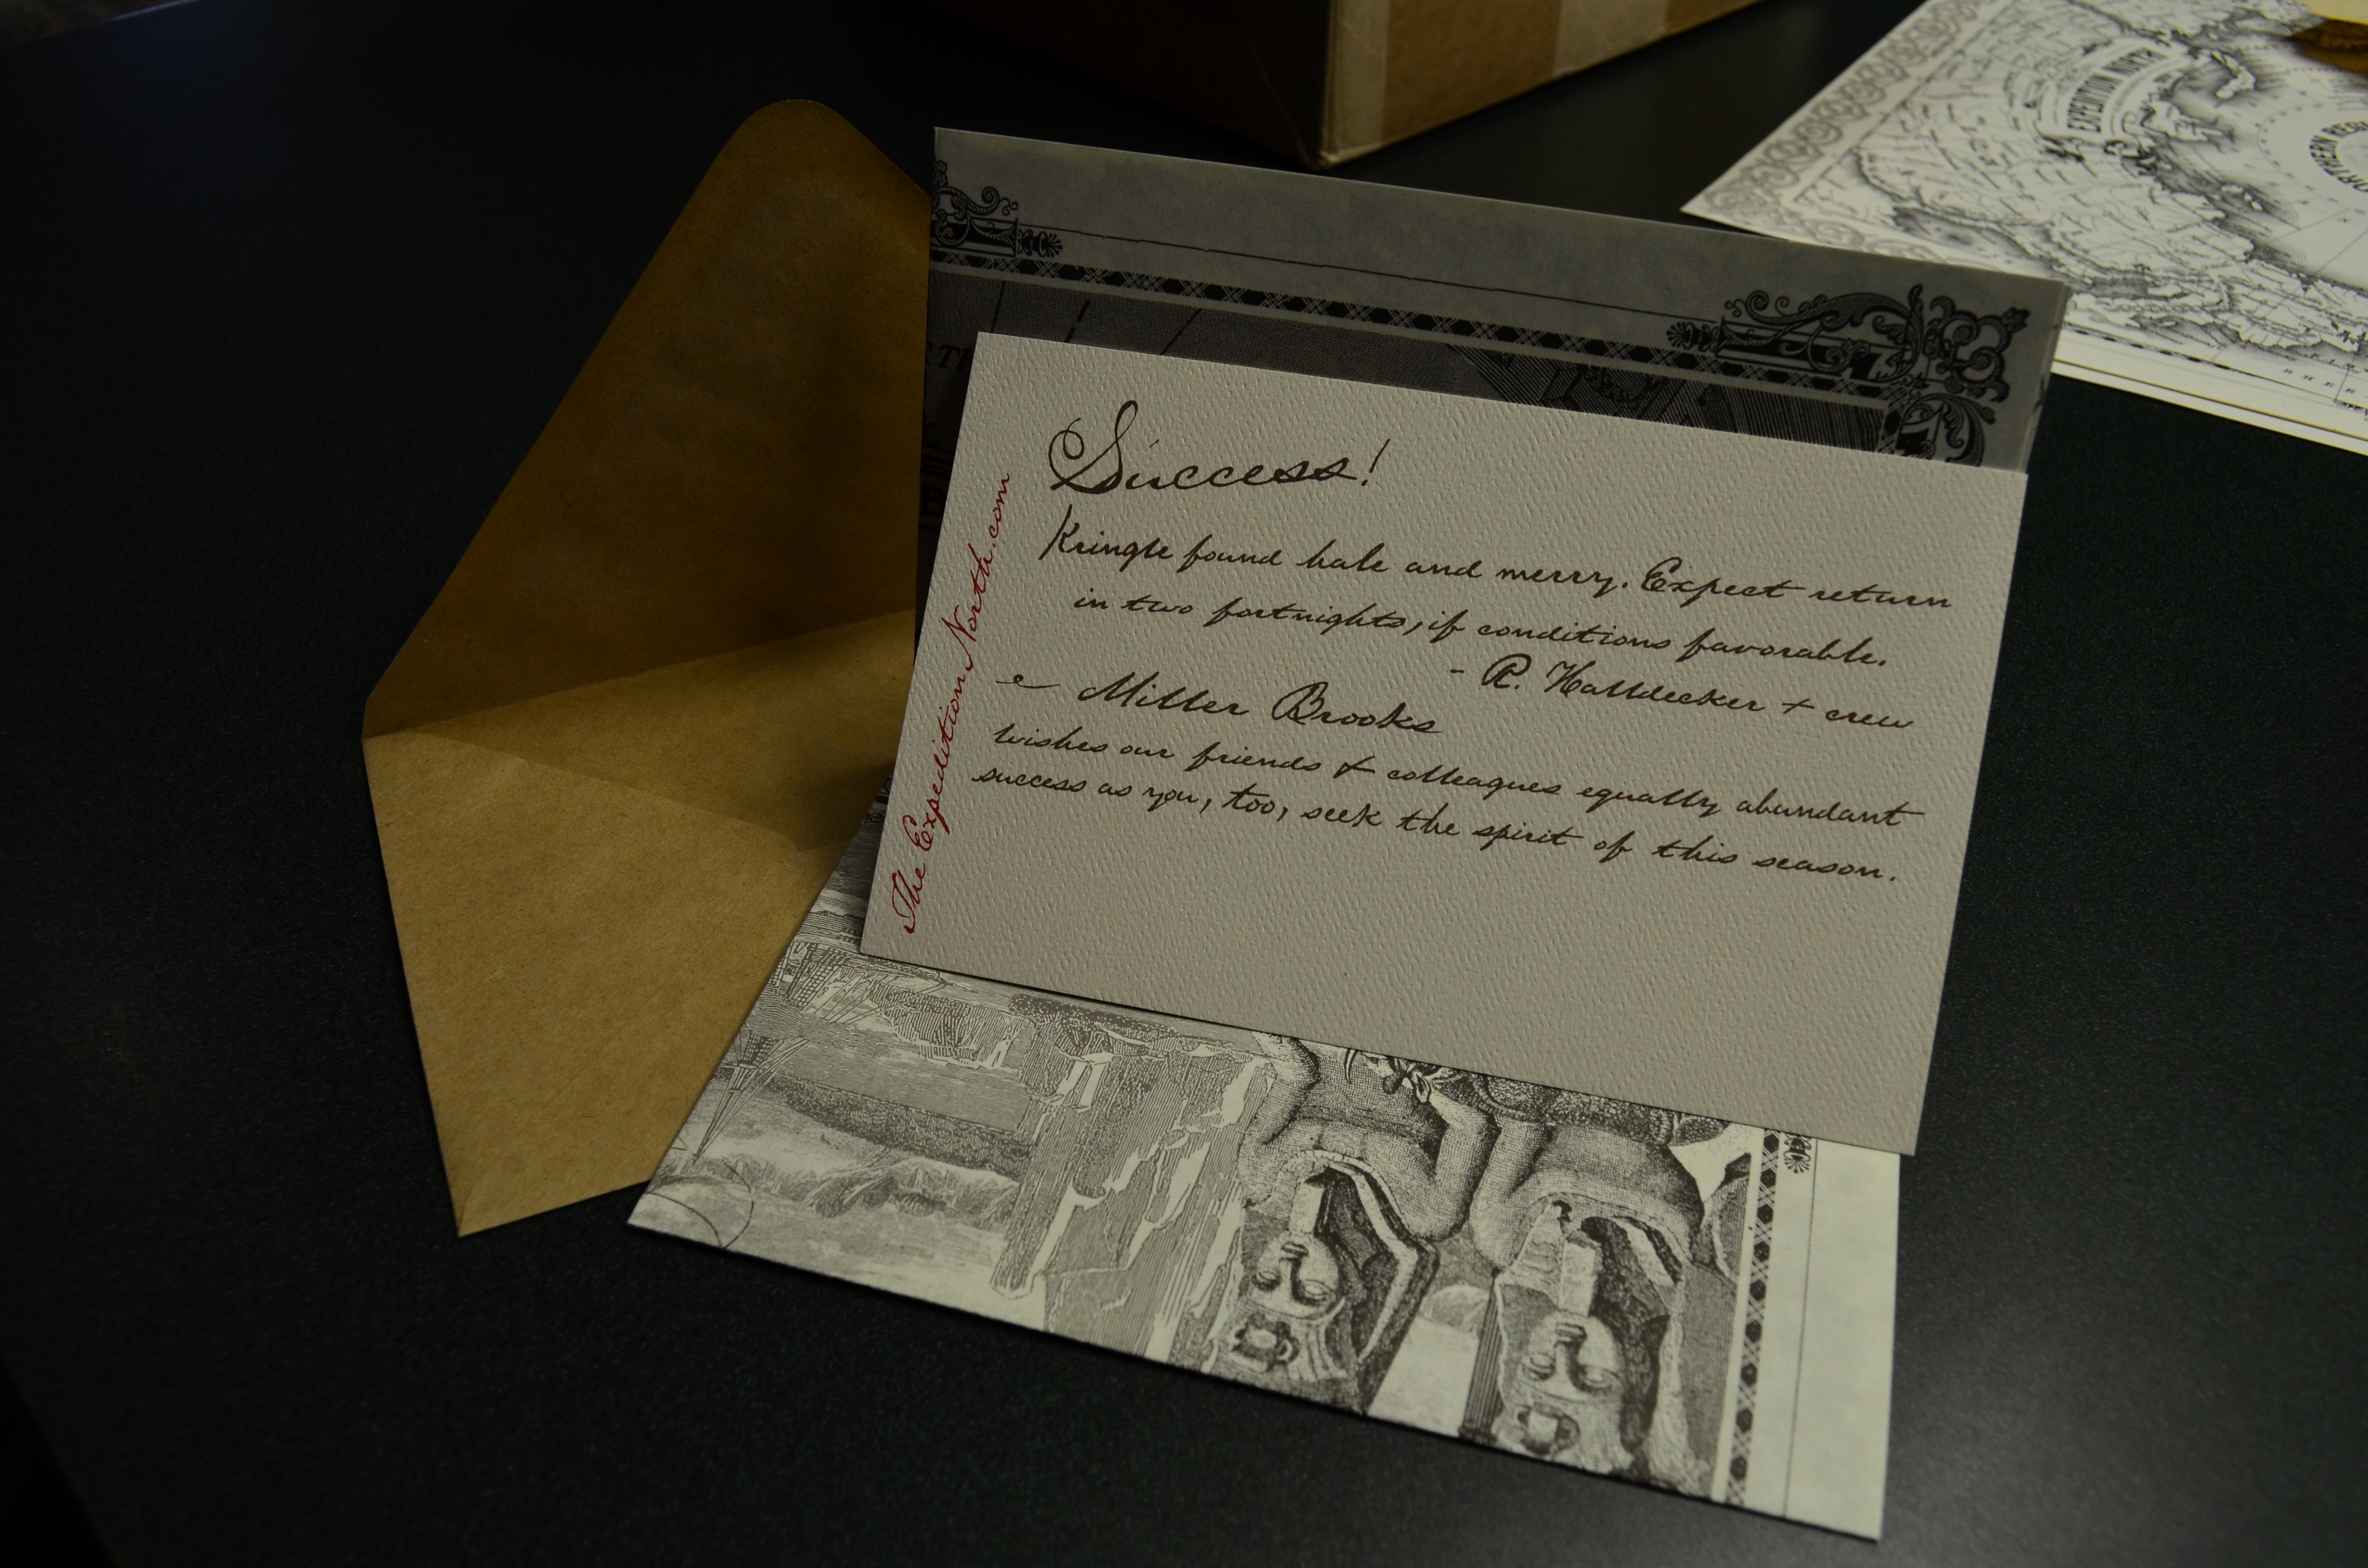 Success!
Kringle found hale and merry. Expect return
in two fortnights, if conditions favorable.
- R. Halldecker + crew
Miller Brooks
wishes our friends & colleagues equally abundant
success as you, too, seek the spirit of this season.
The Expedition North.com
EXPEDITION NORTH